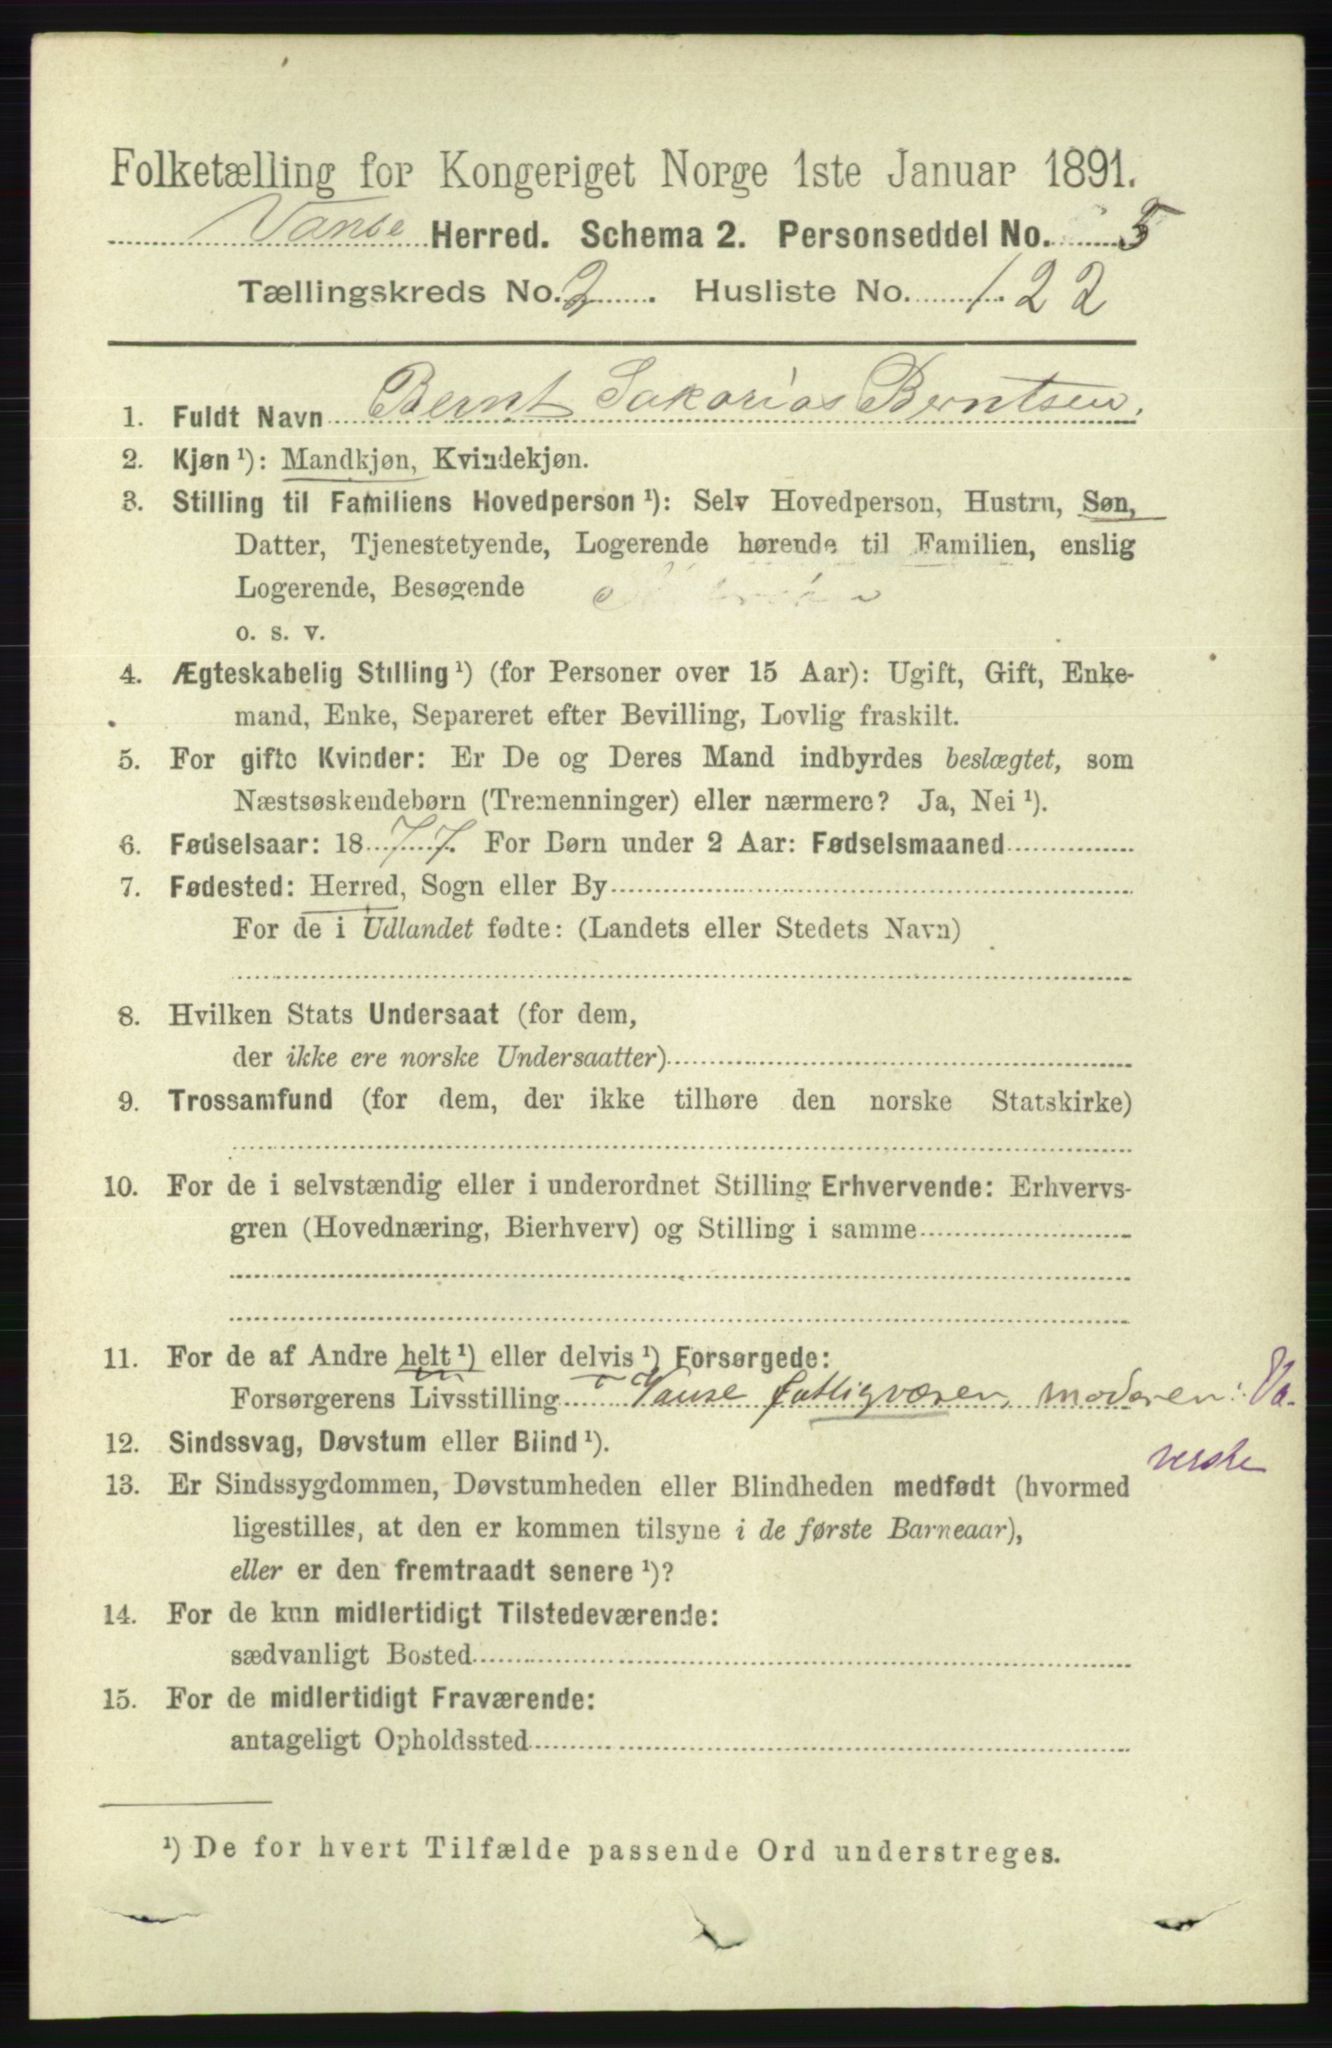 Folketælling for Kongeriget Norge 1ste Januar 1891.
Vanse Herred. Schema 2. Personseddel No. 5
Tællingskreds No. 2. Husliste No. 122
1. Fuldt Navn Bernt Sakarias Berntsen.
2. Kjøn ¹): Mandkjøn, Kvindekjøn.
3. Stilling til Familiens Hovedperson ¹): Selv Hovedperson, Hustru, Søn,
Datter, Tjenestetyende, Logerende hørende til Familien, enslig
Logerende, Besøgende
o. s. v.
4. Ægteskabelig Stilling ¹) (for Personer over 15 Aar): Ugift, Gift, Enke-
mand, Enke, Separeret efter Bevilling, Lovlig fraskilt.
5. For gifte Kvinder: Er De og Deres Mand indbyrdes beslægtet, som
Næstsøskendebørn (Tremenninger) eller nærmere? Ja, Nei ¹).
6. Fødselsaar: 1877. For Børn under 2 Aar: Fødselsmaaned
7. Fødested: Herred, Sogn eller By
For de i Udlandet fødte: (Landets eller Stedets Navn)
8. Hvilken Stats Undersaat (for dem,
der ikke ere norske Undersaatter)
9. Trossamfund (for dem, der ikke tilhøre den norske Statskirke)
10. For de i selvstændig eller i underordnet Stilling Erhvervende: Erhvervs-
gren (Hovednæring, Bierhverv) og Stilling i samme
11. For de af Andre helt ¹) eller delvis ¹) Forsørgede:
Forsørgerens Livsstilling Vanse fattigvæsen, moderen: Va.
12. Sindssvag, Døvstum eller Blind ¹).
verske
13. Er Sindssygdommen, Døvstumheden eller Blindheden medfødt (hvormed
ligestilles, at den er kommen tilsyne i de første Barneaar),
eller er den fremtraadt senere ¹)?
14. For de kun midlertidigt Tilstedeværende:
sædvanligt Bosted
15. For de midlertidigt Fraværende:
antageligt Opholdssted
¹) De for hvert Tilfælde passende Ord understreges.